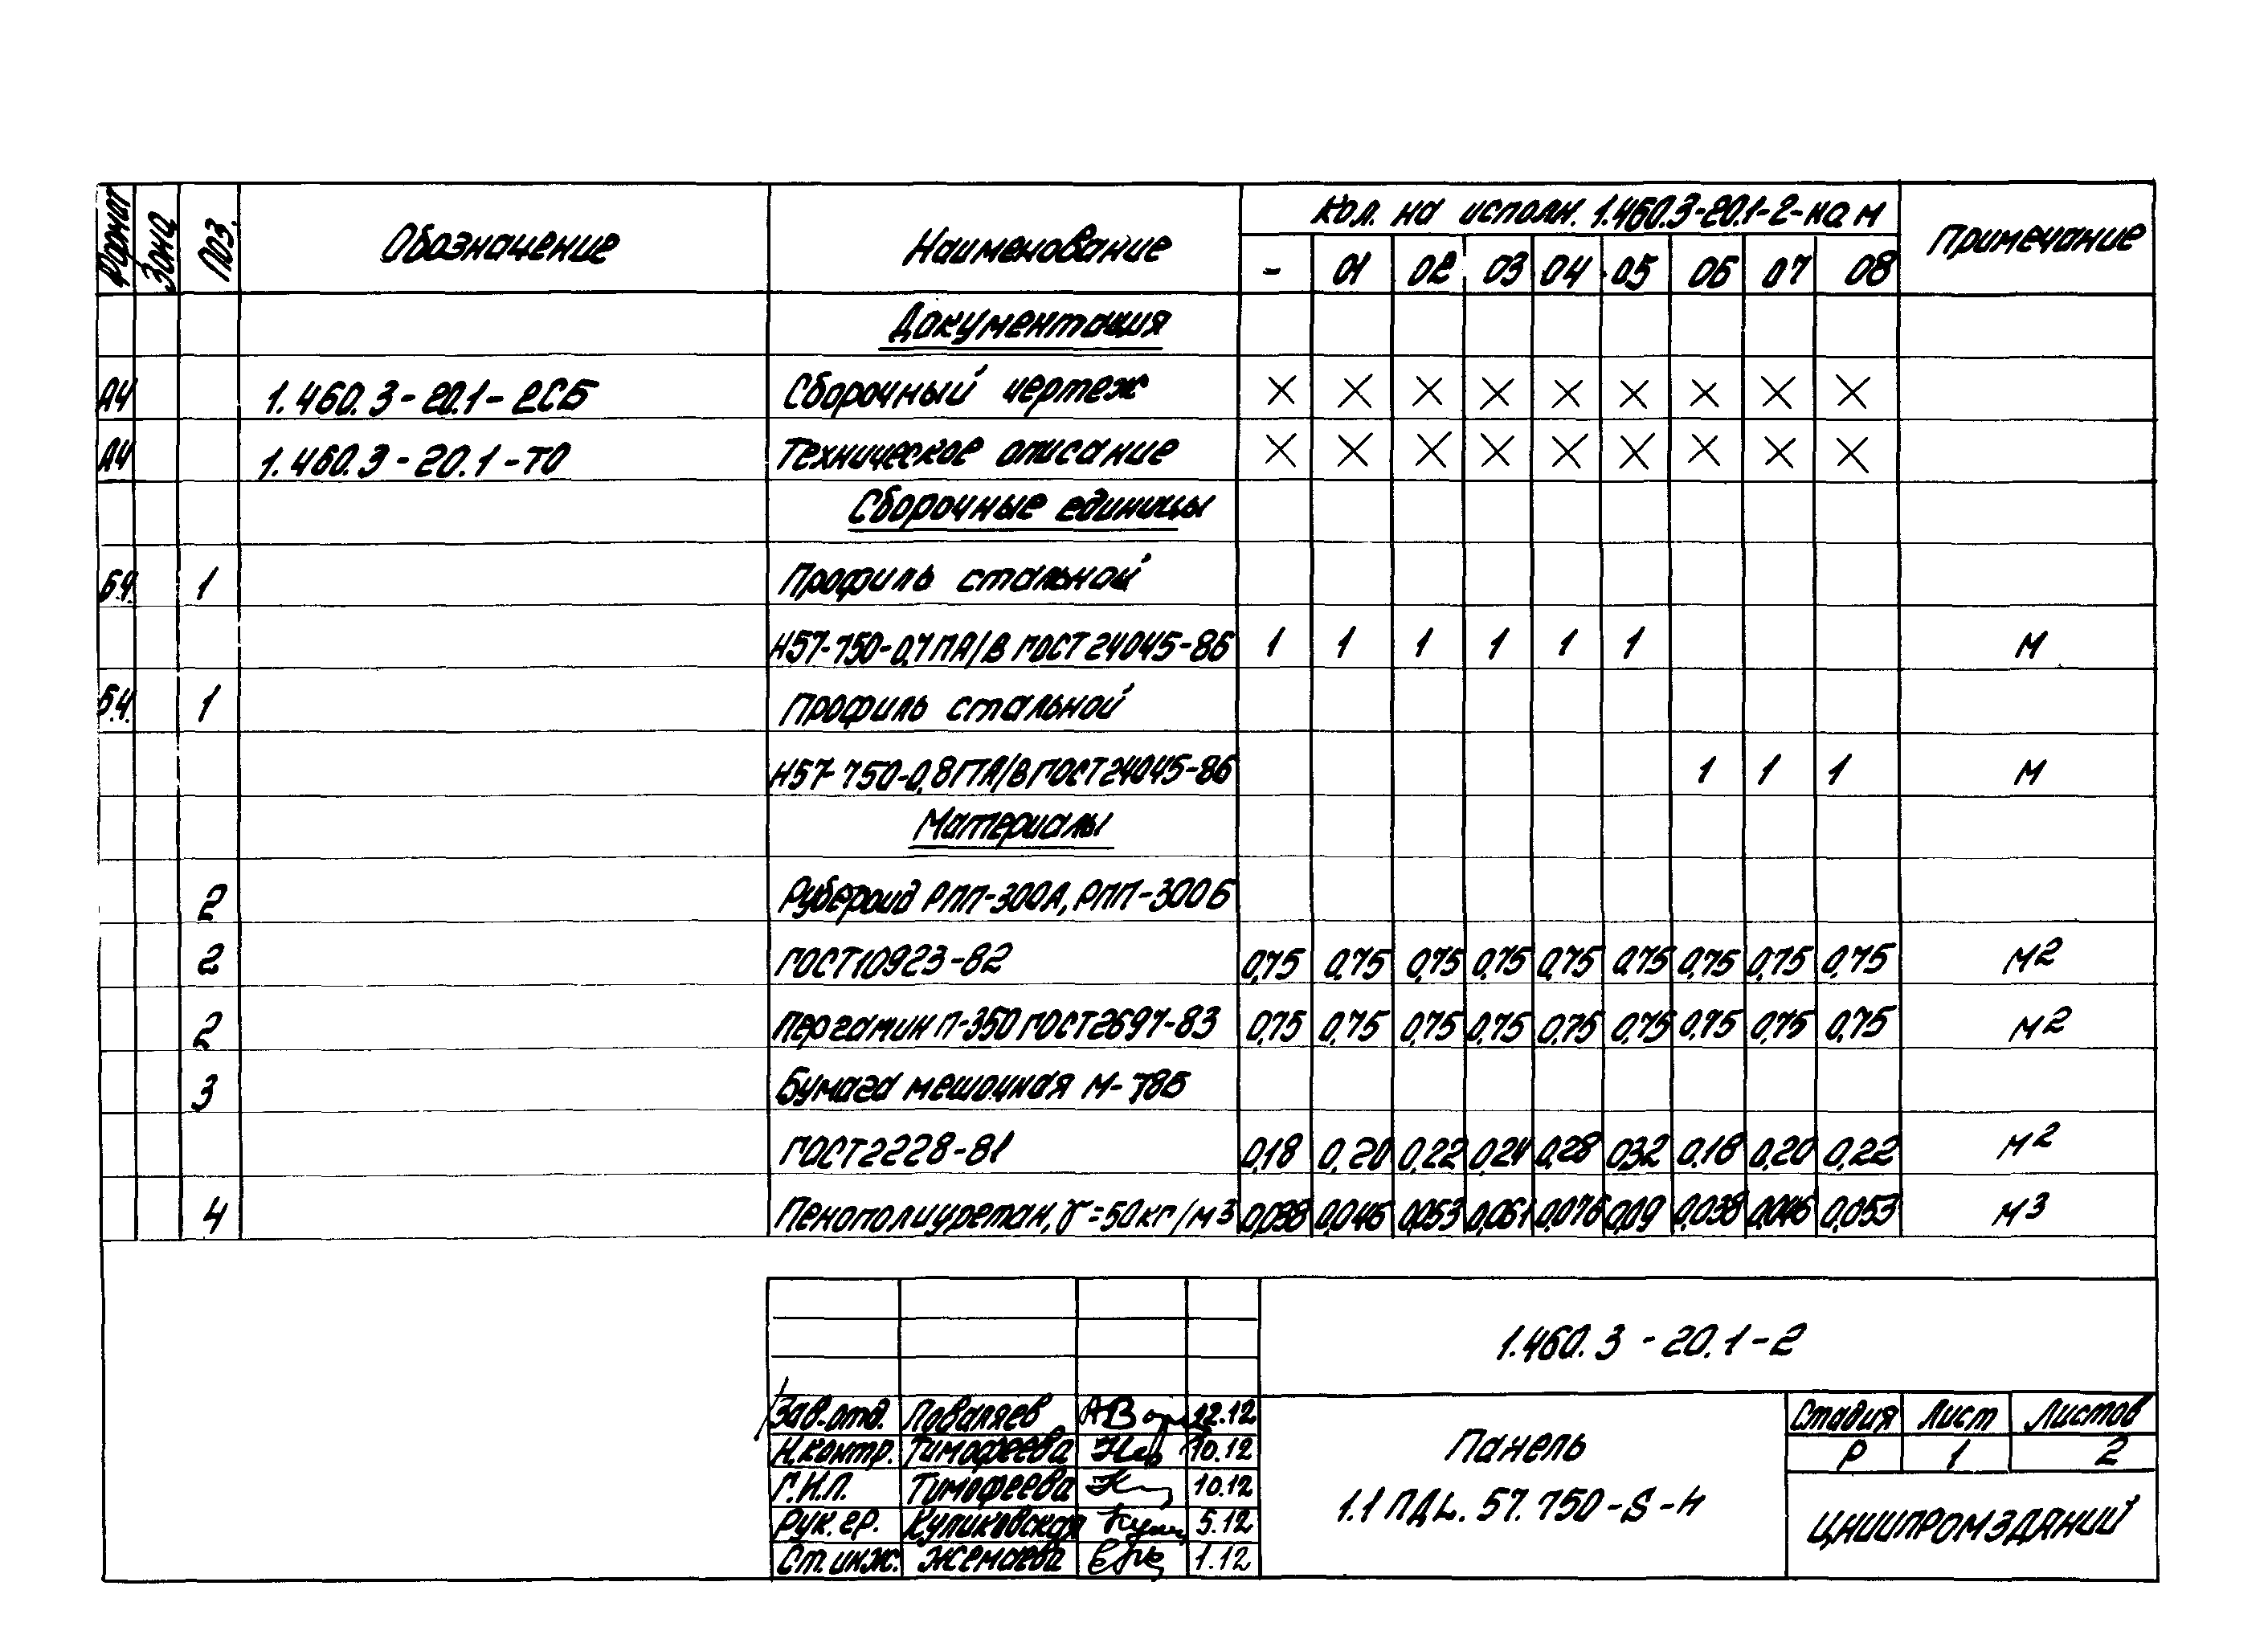 Формат Зона Поз. Обозначение Наименование Кол. на исполн. 1.460.3-20.1-2-на м Примечание
- 01 02 03 04 05 06 07 08
Документация
А4 1.460.3-20.1-2СБ Сборочный чертеж × × × × × × × × ×
А4 1.460.3-20.1-ТО Техническое описание × × × × × × × × ×
Сборочные единицы
Б.Ч. 1 Профиль стальной
Н57-750-0,7ПА/В ГОСТ 24045-86 1 1 1 1 1 1 м
Б.Ч. 1 Профиль стальной
Н57-750-0,8ПА/В ГОСТ 24045-86 1 1 1 м
Материалы
2 Рубероид РПП-300А, РПП-300Б
2 ГОСТ10923-82 0,75 0,75 0,75 0,75 0,75 0,75 0,75 0,75 0,75 м2
2 Пергамин П-350 ГОСТ2697-83 0,75 0,75 0,75 0,75 0,75 0,75 0,75 0,75 0,75 м2
3 Бумага мешочная М-78Б
ГОСТ2228-81 0,18 0,20 0,22 0,24 0,28 0,32 0,18 0,20 0,22 м2
4 Пенополиуретан, γ=50кг/м3 0,038 0,046 0,053 0,061 0,076 0,09 0,038 0,046 0,053 м3
1.460.3-20.1-2
Зав.отд. Поваляев 12.12
Н.контр. Тимофеева 10.12
Г.И.П. Тимофеева 10.12
Рук.гр. Куликовская 5.12
Ст.инж. Жемаева 1.12
Панель
1.1 ПДL.57.750-S-Н
Стадия Лист Листов
Р 1 2
ЦНИИПРОМЗДАНИЙ